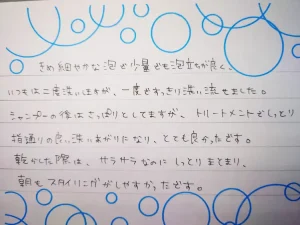 きめ細やかな泡で少量でも泡立ちが良く、
いつもは二度洗いしますが、一度ですっきり洗い流せました。
シャンプーの後はさっぱりとしてますが、トリートメントでしっとり
指通りの良い洗いあがりになり、とても良かったです。
乾かした際は、サラサラなのにしっとりまとまり、
朝もスタイリングがしやすかったです。